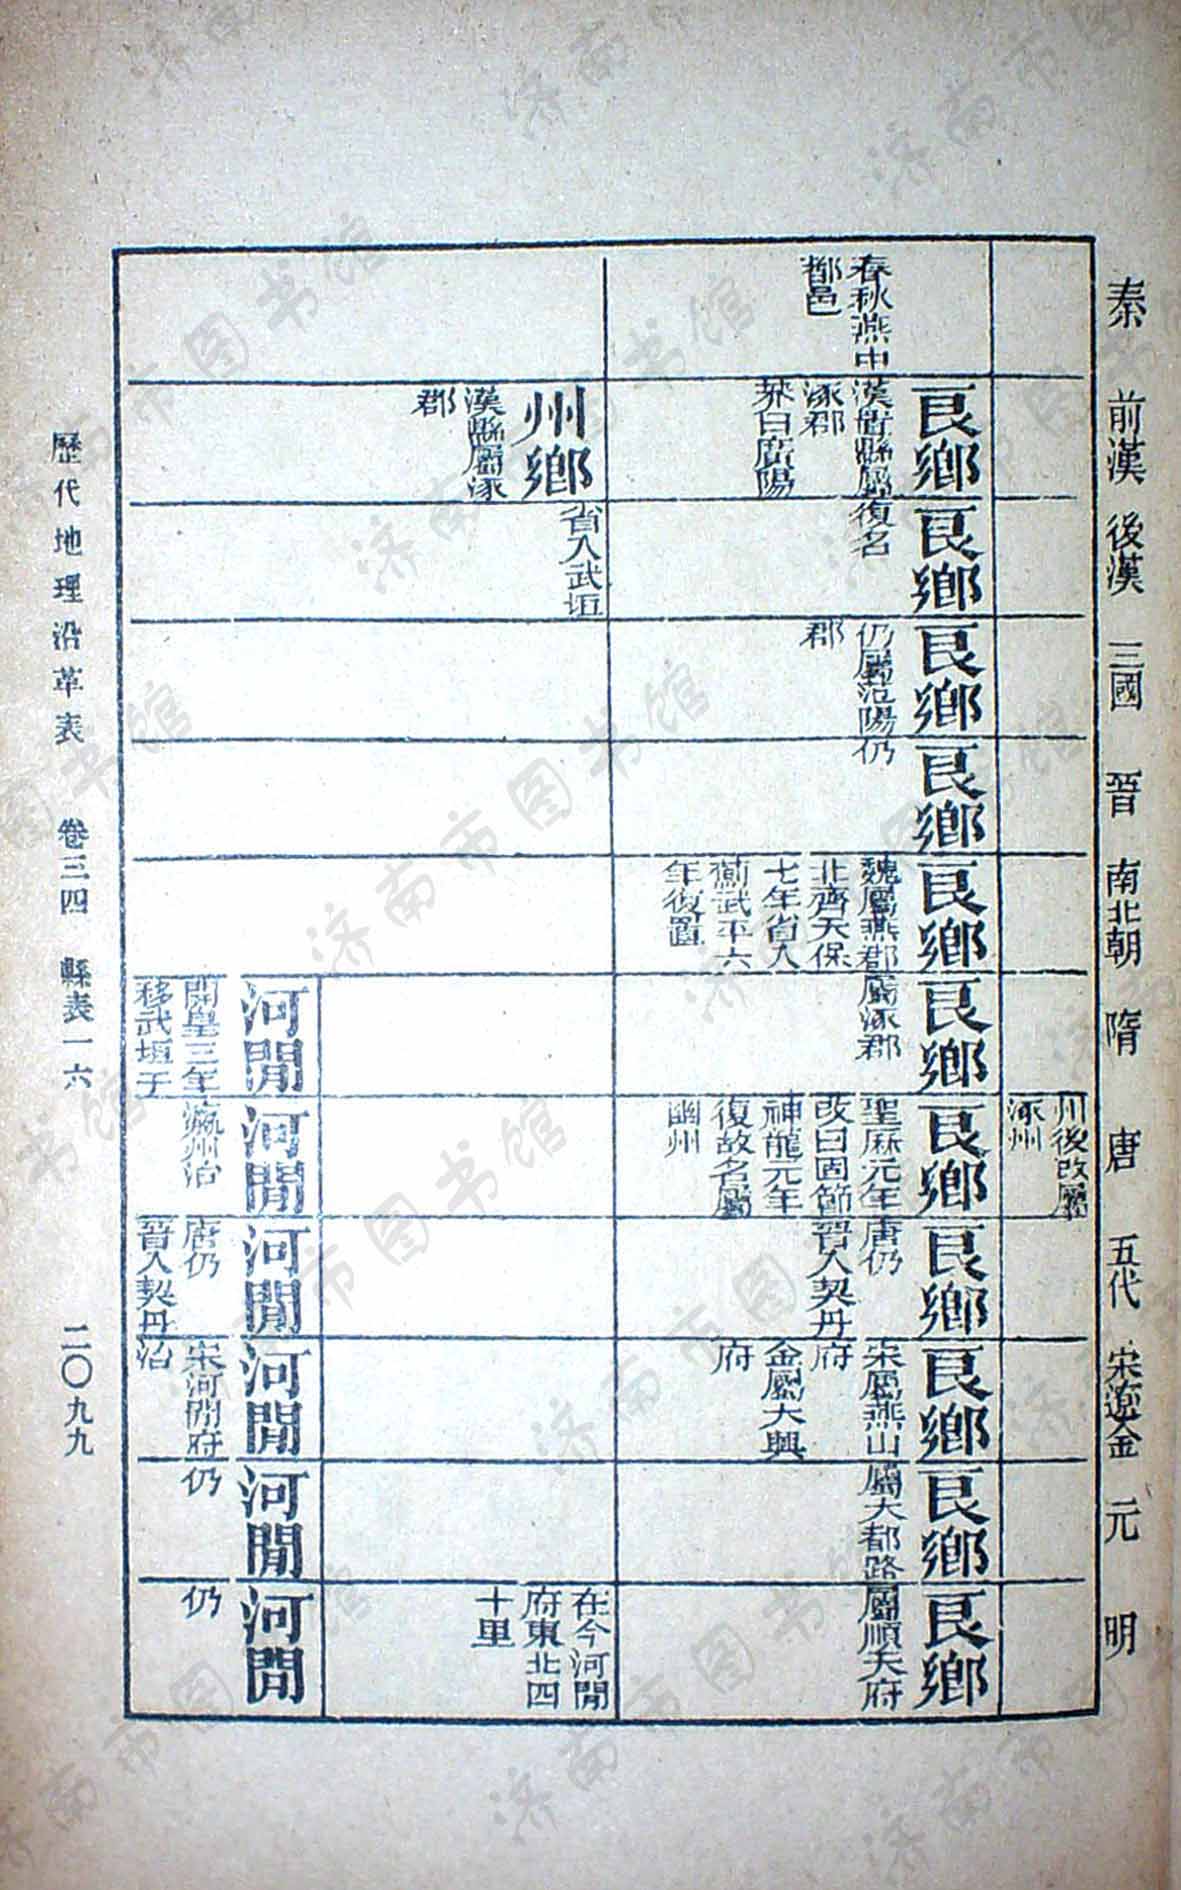 秦 前漢 後漢 三國 晉 南北朝 隋 唐 五代 宋遼金 元 明
州後改屬
涿州
春秋燕中
都邑
良鄉
漢置縣屬
涿郡
莽曰廣陽
良鄉
復名
良鄉
仍屬范陽
郡
良鄉
仍
良鄉
魏屬燕郡
北齊天保
七年省入
薊武平六
年復置
良鄉
屬涿郡
良鄉
聖厤元年
改曰固節
神龍元年
復故名屬
幽州
良鄉
唐仍
晉入契丹
良鄉
宋屬燕山
府
金屬大興
府
良鄉
屬大都路
良鄉
屬順天府
州鄉
漢縣屬涿
郡
省入武垣
在今河間
府東北四
十里
河間
開皇三年
移武垣于
河間
瀛州治
河間
唐仍
晉入契丹
河間
宋河間府
治
河間
仍
河間
仍
歷代地理沿革表 卷三四 縣表一六 二〇九九
济南市图书馆